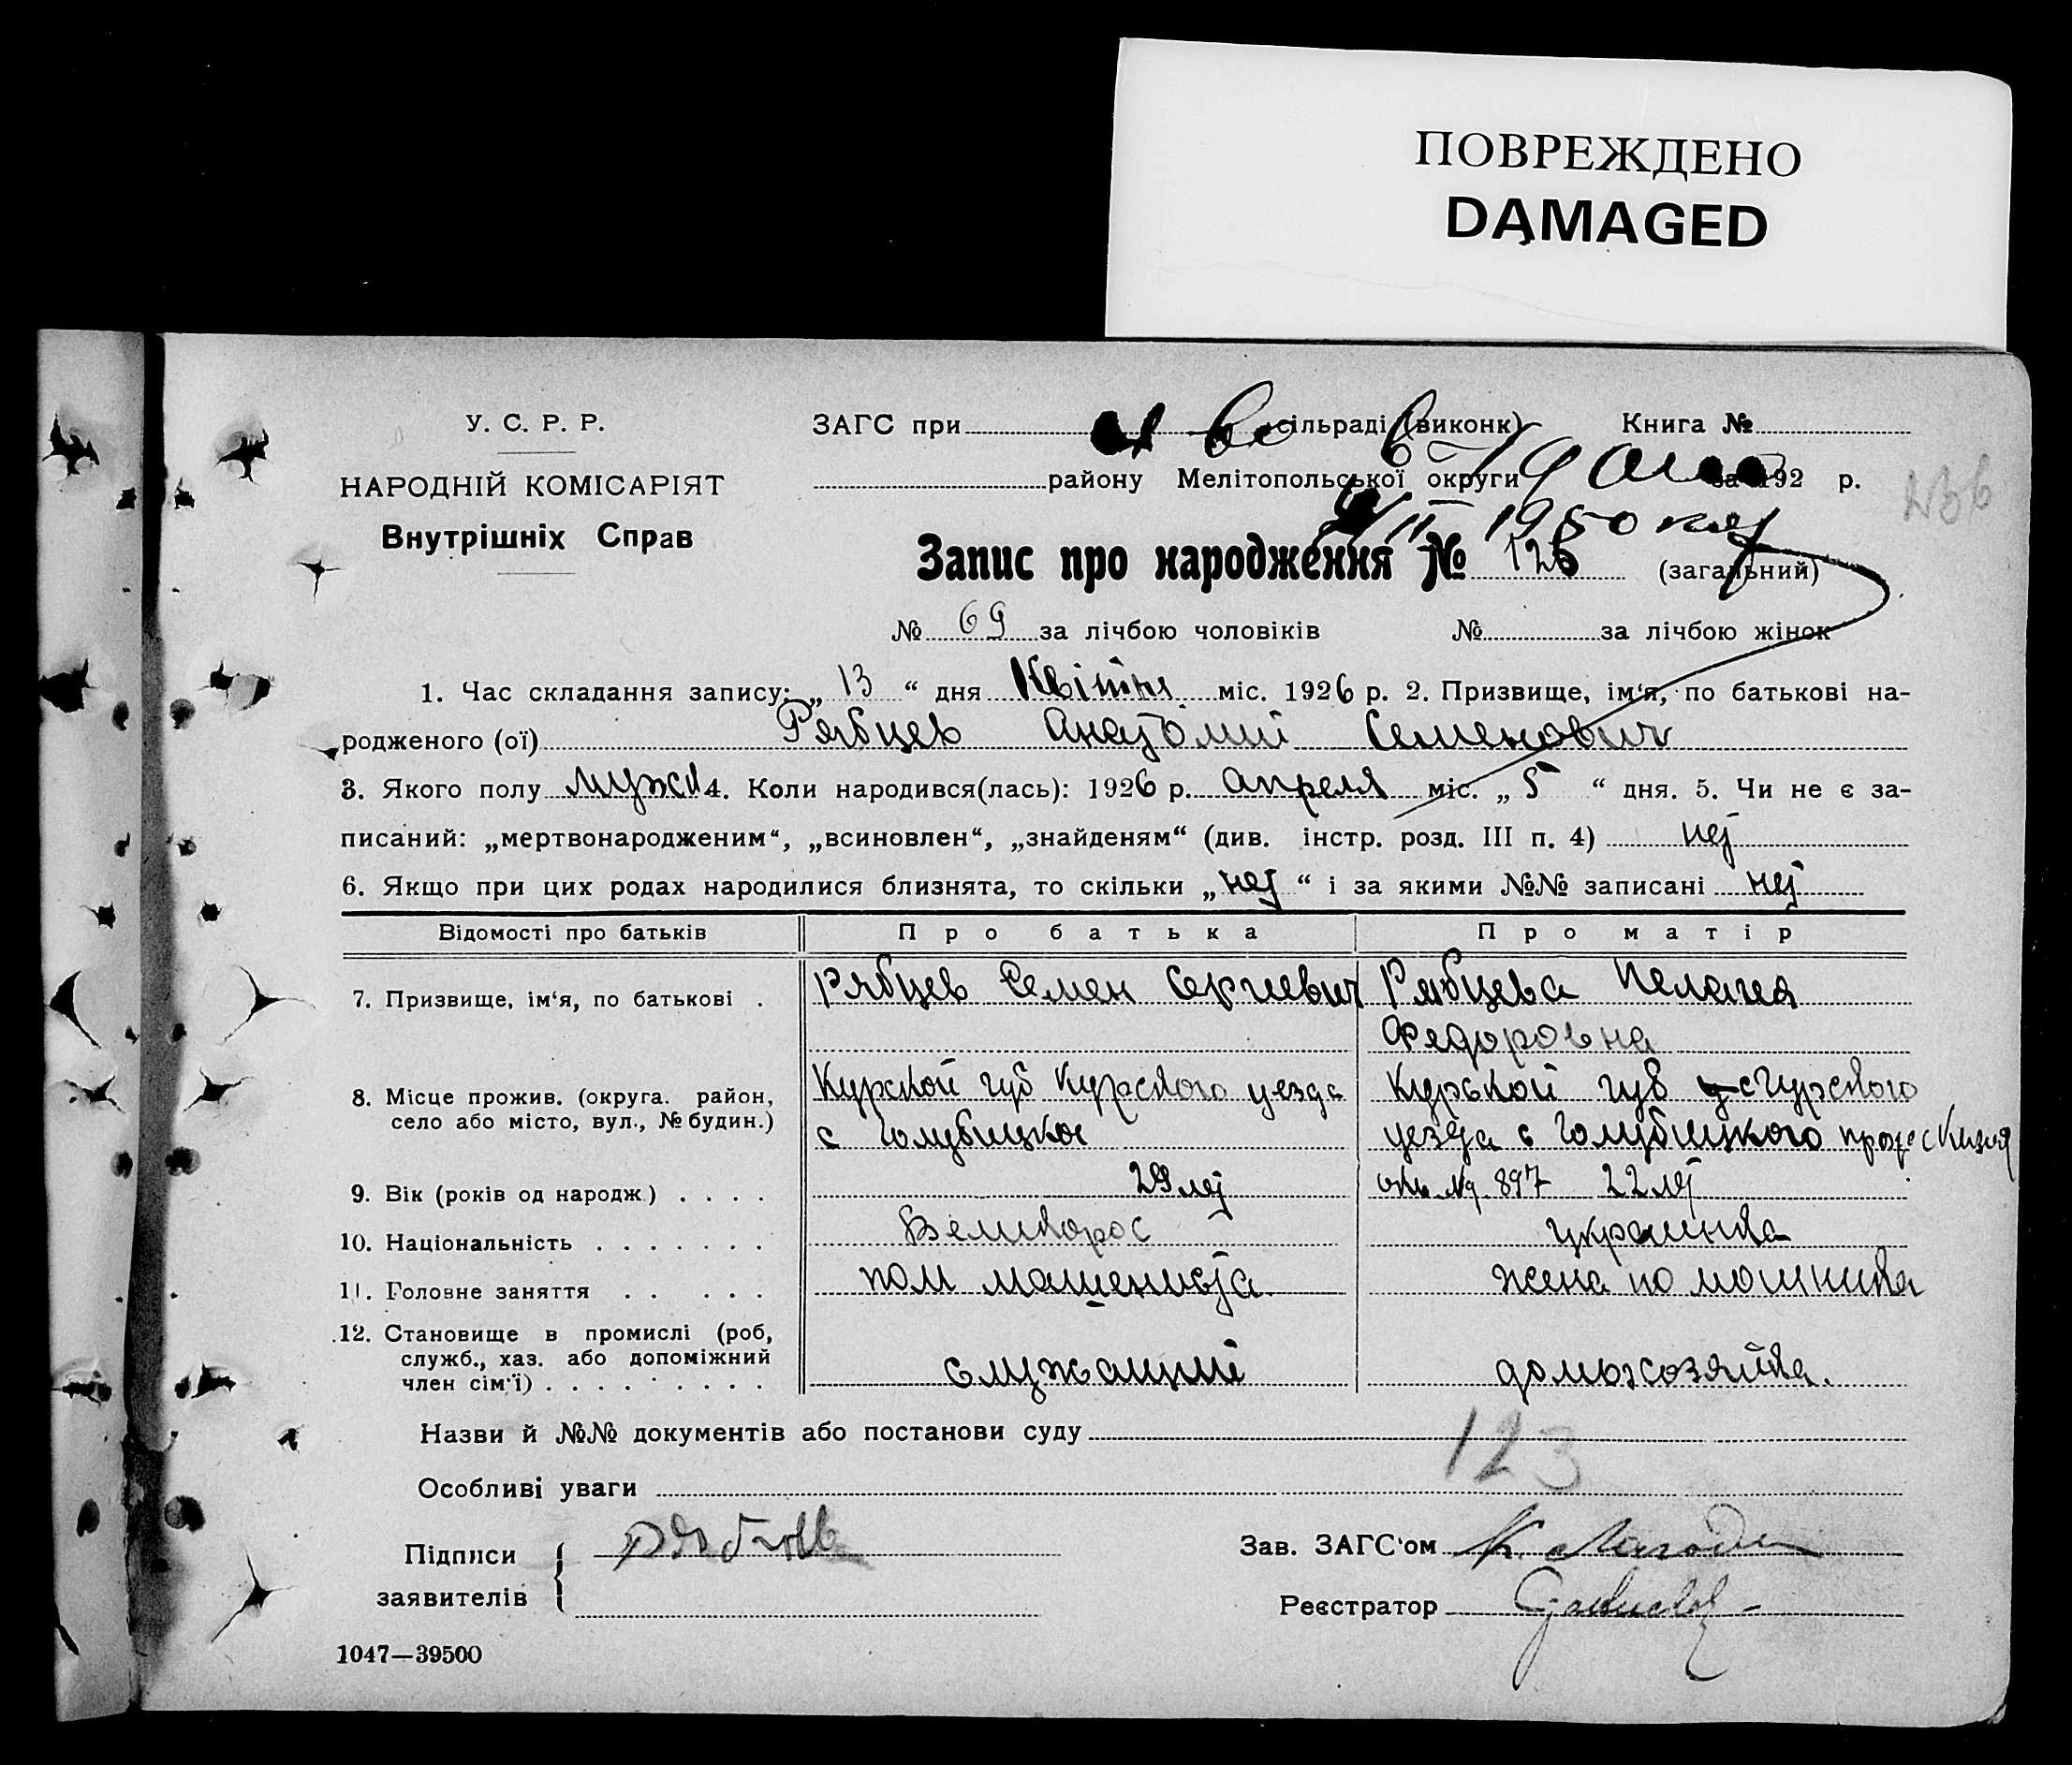 ПОВРЕЖДЕНО
DAMAGED
У. С. Р. Р.
НАРОДНІЙ КОМІСАРІЯТ
Внутрішніх Справ
ЗАГС при сільраді (виконк) Книга №
району Мелітопольської округи за 192 р.
236
1950
Запис про народження № 126 (загальний)
№ 69 за лічбою чоловіків № за лічбою жінок
1. Час складання запису: „ 13 “ дня Квітня міс. 1926 р. 2. Призвище, ім‘я, по батькові на-
родженого (ої) Рябцев Анатолий Семенович
3. Якого полу мужск 4. Коли народився(лась): 1926 р. апреля міс. „ 5 “ дня. 5. Чи не є за-
писаний: „мертвонародженим“, „всиновлен“, „знайденям“ (див. інстр. розд. III п. 4) нет
6. Якщо при цих родах народилися близнята, то скільки „ нет “ і за якими №№ записані нет
Відомості про батьків Про батька Про матір
7. Призвище, ім‘я, по батькові . Рябцев Семен Сергиевич Рябцева Пелагея
Федоровна
8. Місце прожив. (округа. район, Курской губ Курского уезда Курской губ Курского
село або місто, вул., № будин.) с Голубицкое уезда с Голубицкого
9. Вік (років од народж.) . . . . 29 лет 897 22 лет
10. Національність . . . . . . . Великорос украинка
11. Головне заняття . . . . . пом машениста жена помошника
12. Становище в промислі (роб,
служб., хаз. або допоміжний
член сім‘ї) . . . . . . . . . служащий домохозяйка.
Назви й №№ документів або постанови суду
123
Особливі уваги
Підписи
заявителів
Зав. ЗАГС‘ом
Реєстратор
1047—39500